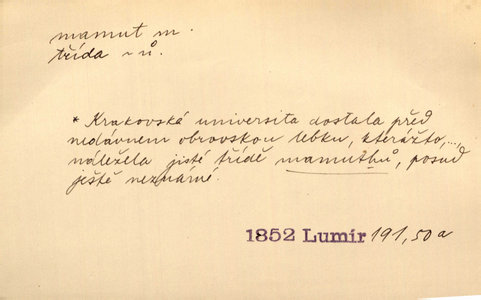 mamut m.
třída ~ů.
* Krakovská universita dostala před
nedávnem obrovskou lebku, kterážto,...,
náležela jisté třídě mamuthů, posud
ještě neznámé.
1852 Lumír 191,50a